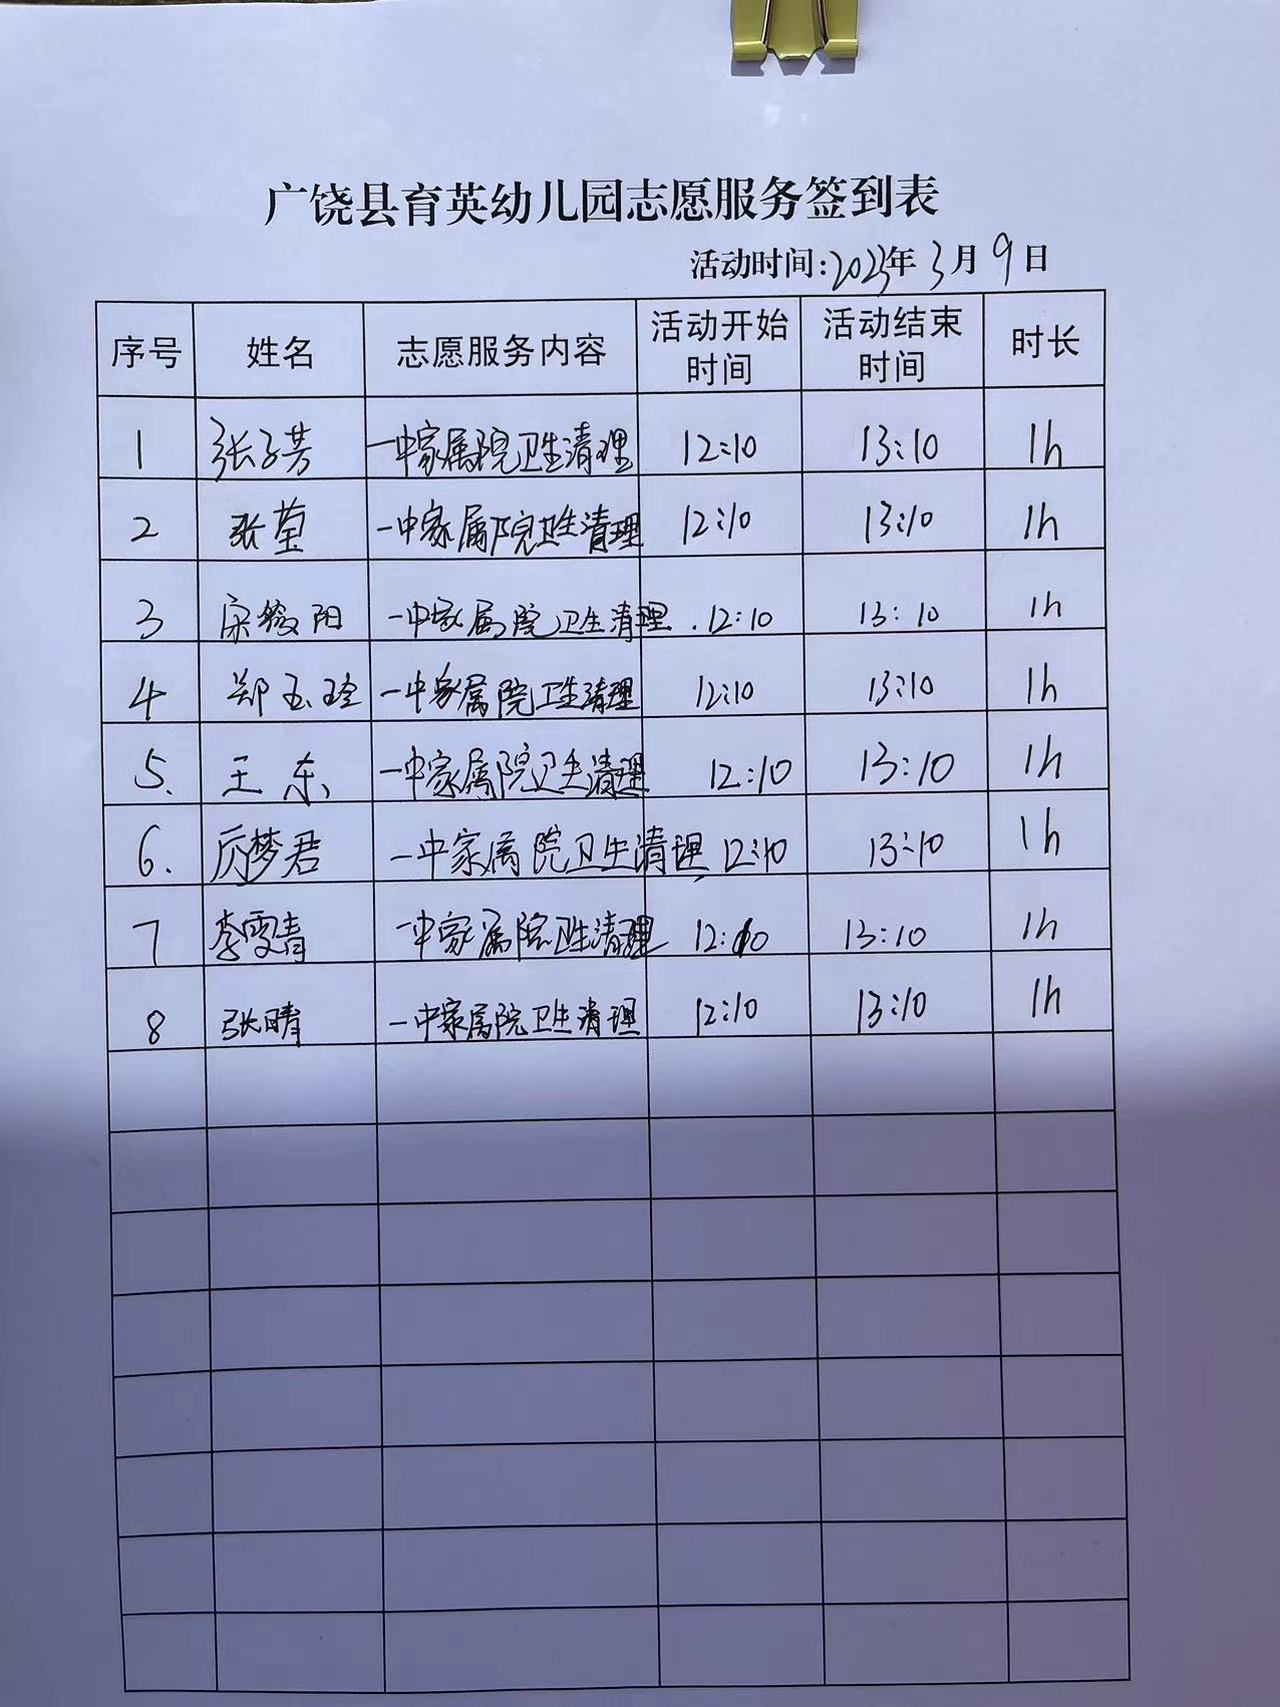 广饶县育英幼儿园志愿服务签到表
活动时间:2023年3月9日
序号 姓名 志愿服务内容 活动开始时间 活动结束时间 时长
1 张子芳 一中家属院卫生清理 12:10 13:10 1h
2 张莹 一中家属院卫生清理 12:10 13:10 1h
3 宋筱阳 一中家属院卫生清理 12:10 13:10 1h
4 郑玉玲 一中家属院卫生清理 12:10 13:10 1h
5. 王东 一中家属院卫生清理 12:10 13:10 1h
6. 厉梦君 一中家属院卫生清理 12:10 13:10 1h
7 李雯青 一中家属院卫生清理 12:10 13:10 1h
8 张晴 一中家属院卫生清理 12:10 13:10 1h